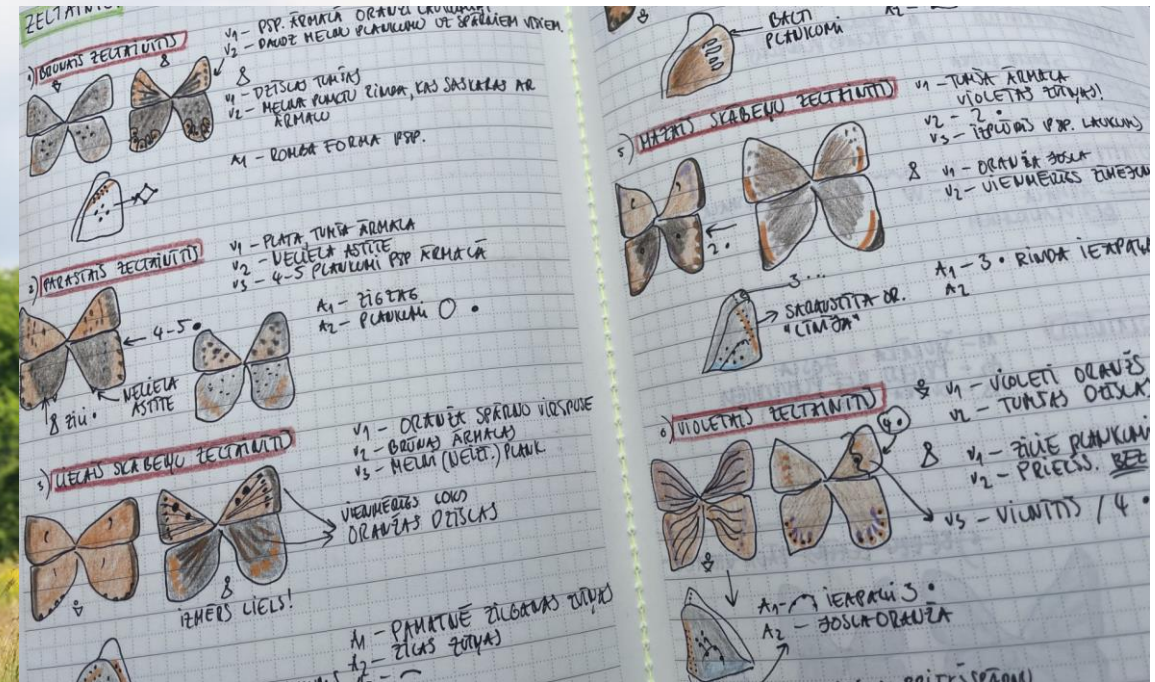 ZELTAINIŅ
1) BRŪNAIS ZELTAINĪTIS
V1 – PSP. ĀRMALĀ ORANŽI LAUKUMI
V2 – DAUDZ MELNU PLANKUMU UZ SPĀRNIEM VISIEM.
V1 – DZĪSLAS TUMŠAS
V2 – MELNA PUNKTU RINDA, KAS SASKARAS AR
ĀRMALU
A1 – ROMBA FORMA PSP.
2) PARASTAIS ZELTAINĪTIS
V1 – PLATA, TUMŠA ĀRMALA
V2 – NELIELA ASTĪTE
V3 – 4-5 PLANKUMI PSP ĀRMALĀ
A1 – ZIGZAG
A2 – PLANKUMI
4-5
8 ZILI
NELIELA
ASTĪTE
3) LIELAIS SKĀBEŅU ZELTAINĪTIS
V1 – ORANŽA SPĀRNU VIRSPUSE
V2 – BRŪNAS ĀRMALAS
V3 – MELNI (NELIELI) PLANK.
VIENMĒRĪGS LOKS
ORANŽAS DZĪSLAS
IZMĒRS LIELS!
A1 – PAMATNĒ ZILGANAS ZVĪŅAS
A2 – ZILAS ZVĪŅAS
BALTI
PLANKUMI
5) MAZAIS SKĀBEŅU ZELTAINĪTIS
V1 – TUMŠA ĀRMALA
VIOLETAS ZVĪŅAS!
V2 – 2 •
V3 – IZPLŪDIS PSP. LAUKUMS
V1 – ORANŽA JOSLA
V2 – VIENMĒRĪGS ZĪMĒJUM
2 •
3...
SARAUSTĪTA OR.
"LĪNIJA"
A1 – 3 • RINDA IEAPAĻA
A2
6) VIOLETAIS ZELTAINĪTIS
V1 – VIOLETI ORANŽS
V2 – TUMŠAS DZĪSLAS
4 •
V1 – ZILIE PLANKUMI
V2 – PRIEKŠ. BEZ
V3 – VILNĪTIS / 4 •
A1 – IEAPAĻI 3 •
A2 – JOSLA ORANŽA